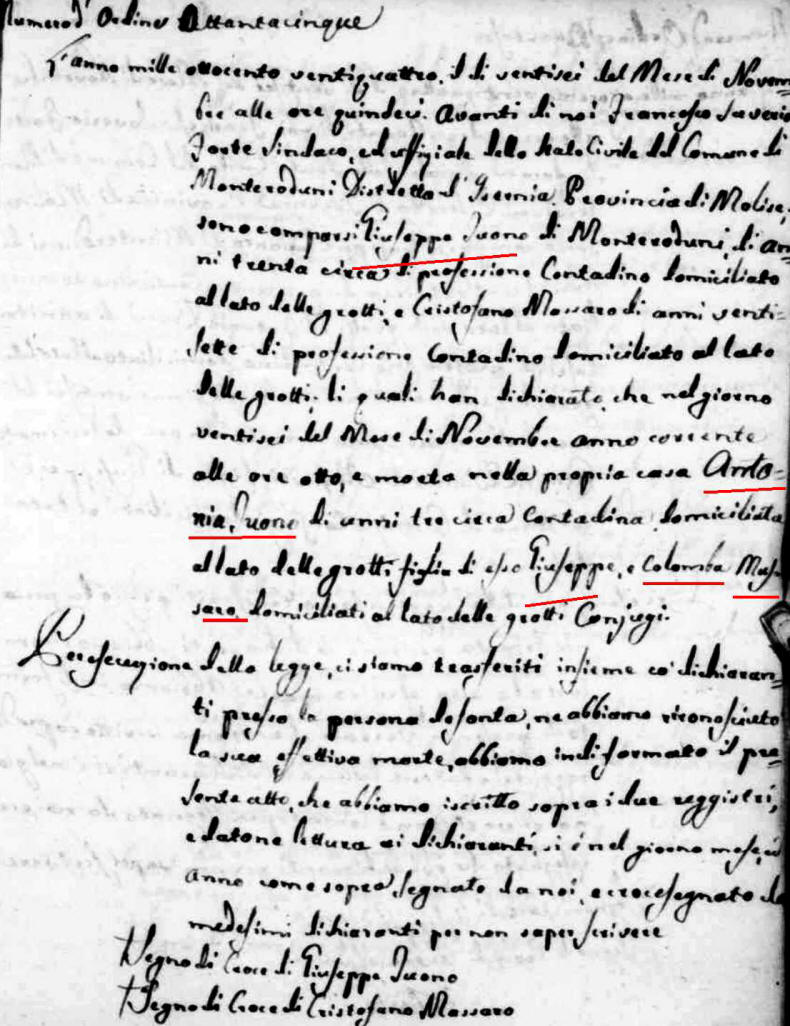 Numero d' Ordine Ottantacinque
L'anno mille ottocento ventiquattro, il dì ventisei del Mese di Novem=
bre alle ore quindeci. Avanti di noi Francesco Saverio
Forte Sindaco, ed uffiziale dello Stato Civile del Comune di
Monteroduni Distretto d' Isernia Provincia di Molise,
sono comparsi Giuseppe Iuono di Monteroduni, di an=
ni trenta circa di professione Contadino domiciliato
al lato delle grotti, e Cristofano Massaro di anni venti=
sette di professione Contadino domiciliato al lato
delle grotti, li quali han dichiarato, che nel giorno
ventisei del Mese di Novembre anno corrente
alle ore otto, e morta nella propria casa Anto=
nia Iuono di anni tre circa Contadina domiciliata
al lato delle grotti figlia di esso Giuseppe, e Colomba Mas=
saro, domiciliati al lato delle grotti Conjugi.
Per esecuzione della legge, ci siamo trasferiti insieme co' dichiaran=
ti presso la persona defonta, ne abbiamo riconosciuto
la sua effettiva morte, abbiamo indi formato il pre=
sente atto, che abbiamo iscritto sopra i due reggistri,
e datone lettura ai dichiaranti, si è nel giorno mese, ed
anno come sopra segnato da noi, e crocesegnato da
medesimi dichiaranti per non saper scrivere
Segno di Croce di Giuseppe Iuono
Segno di Croce di Cristofano Massaro